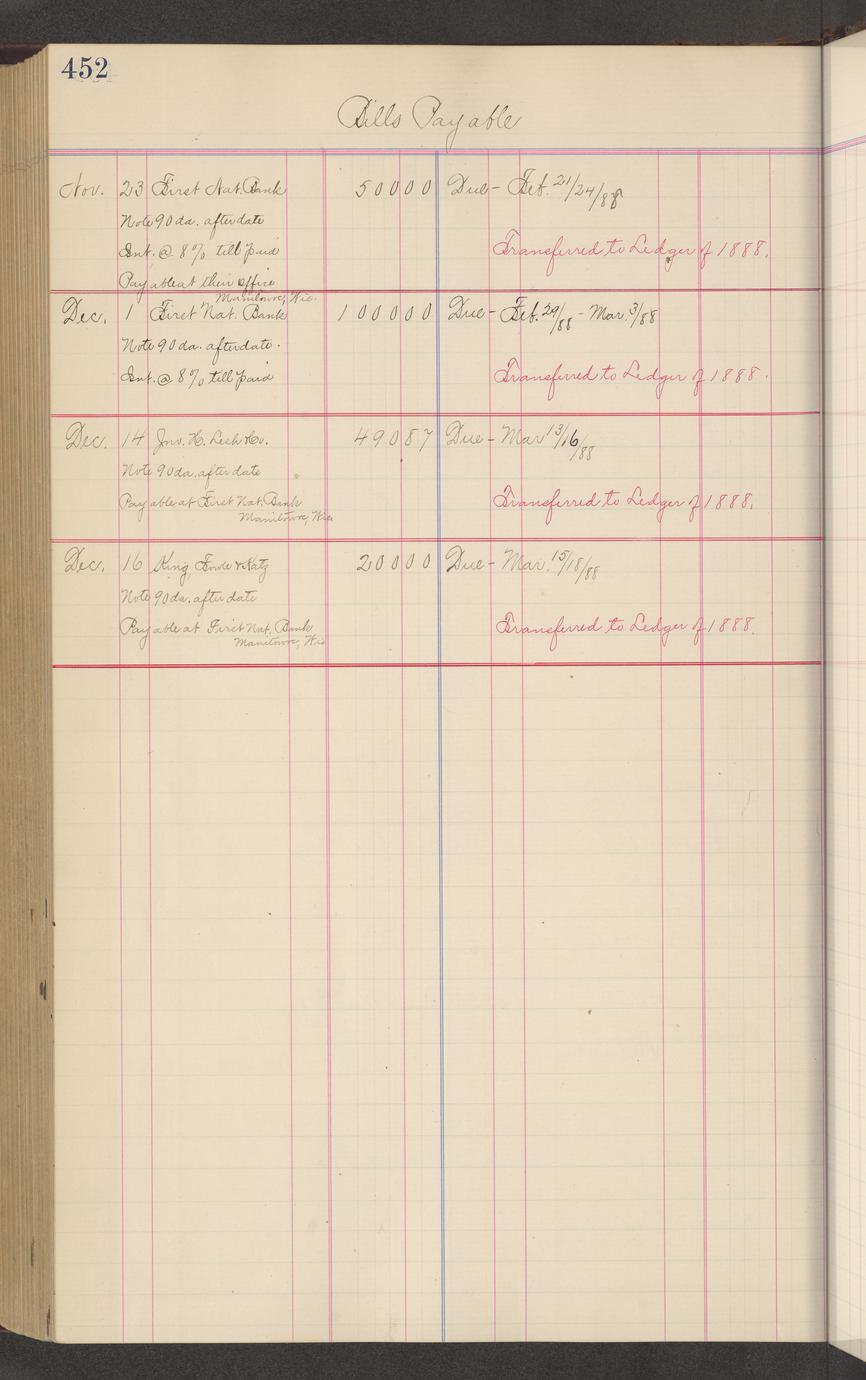 452
Bills Payable
Nov. 23 First Nat. Bank 50000 Due - Feb. 21/24/88
Note 90 da. after date
Int. @ 8% till paid Transferred to Ledger of 1888.
Payable at their office
Manitowoc, Wis.
Dec. 1 First Nat. Bank 100000 Due - Feb. 29/88 - Mar. 3/88
Note 90 da. after date.
Int. @ 8% till paid Transferred to Ledger of 1888.
Dec. 14 Jno. H. Lesh & Co. 49087 Due - Mar 13/16/88
Note 90 da. after date
Payable at First Nat. Bank Transferred to Ledger of 1888.
Manitowoc, Wis
Dec. 16 King, Fowle & Katz 20000 Due - Mar. 15/18/88
Note 90 da. after date
Payable at First Nat. Bank Transferred to Ledger of 1888.
Manitowoc, Wis